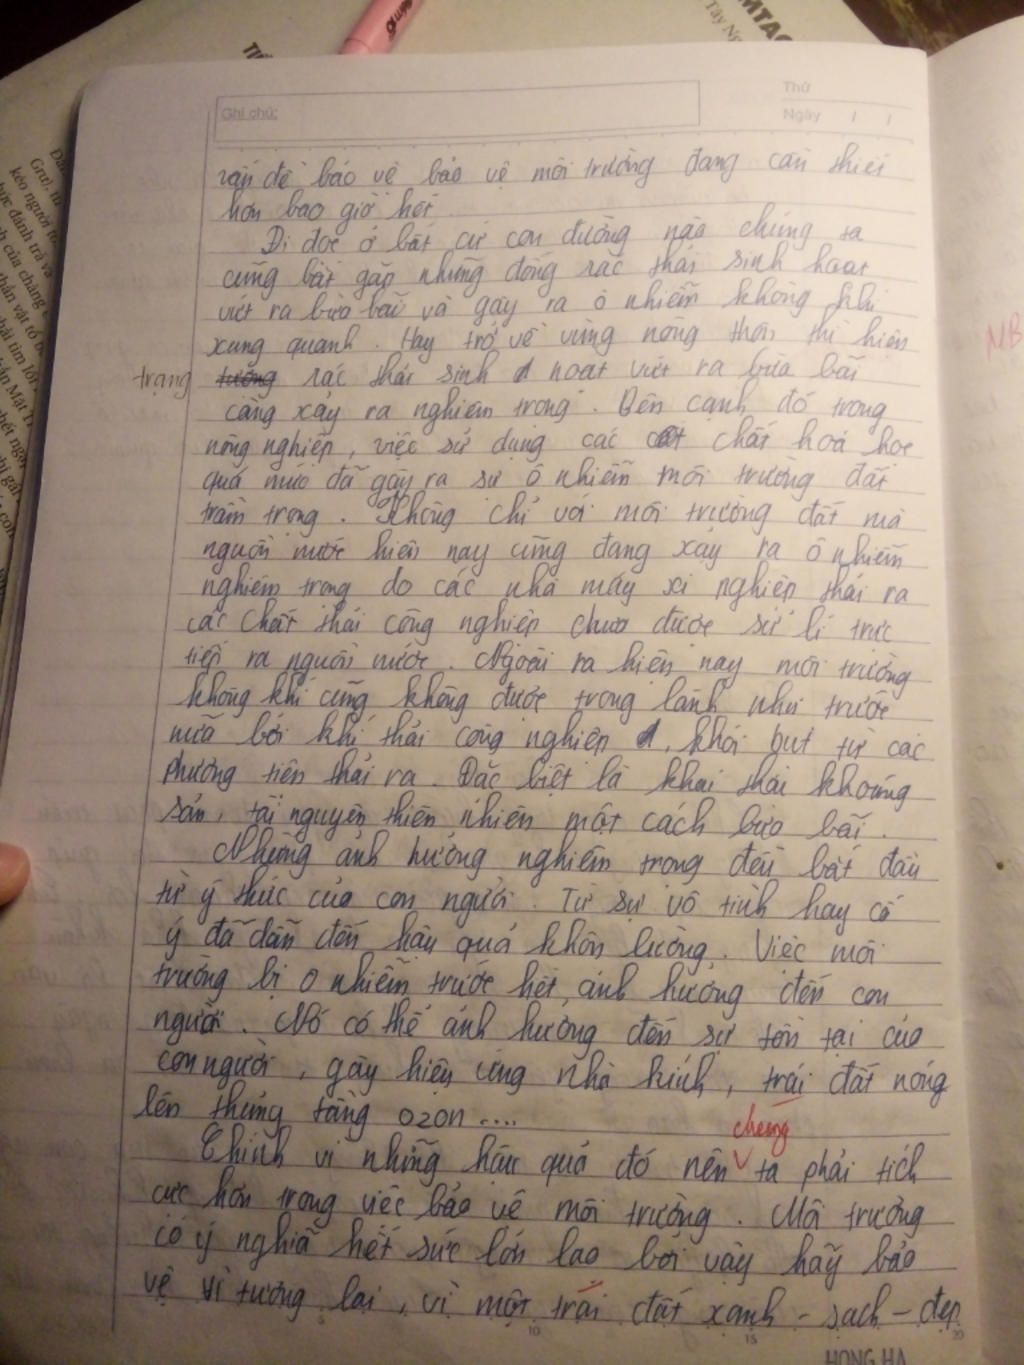 Ghi chú:
Thứ
Ngày
vấn đề bảo vệ bảo vệ môi trường đang cần thiết
hơn bao giờ hết.
Đi dọc ở bất cứ con đường nào chúng ta
cũng bắt gặp những đống rác thải sinh hoạt
vứt ra bừa bãi và gây ra ô nhiễm không khí
xung quanh. Hay trở về vùng nông thôn thì hiện
trạng tướng rác thải sinh hoạt vứt ra bừa bãi
càng xảy ra nghiêm trọng. Bên cạnh đó trong
nông nghiệp, việc sử dụng các chất hoá học
quá mức đã gây ra sự ô nhiễm môi trường đất
trầm trọng. Không chỉ với môi trường đất mà
nguồn nước hiện nay cũng đang xảy ra ô nhiễm
nghiêm trọng do các nhà máy xí nghiệp thải ra
các chất thải công nghiệp chưa được sử lí trực
tiếp ra nguồn nước. Ngoài ra hiện nay môi trường
không khí cũng không được trong lành như trước
nữa bởi khí thải công nghiệp, khói bụi từ các
phương tiện thải ra. Đặc biệt là khai thái khoáng
sản, tài nguyên thiên nhiên một cách bừa bãi.
Những ảnh hưởng nghiêm trọng đến bắt đầu
từ ý thức của con người. Từ sự vô tình hay cố
ý đã dẫn đến hậu quả khôn lường. Việc môi
trường bị ô nhiễm trước hết, ảnh hưởng đến con
người. Nó có thể ảnh hưởng đến sự tồn tại của
con người, gây hiệu ứng nhà kính, trái đất nóng
lên thủng tầng ozon....
chúng
Chính vì những hậu quả đó nên ta phải tích
cực hơn trong việc bảo vệ môi trường. Môi trường
có ý nghĩa hết sức lớn lao bởi vậy hãy bảo
vệ vì tương lai, vì một trái đất xanh - sạch - đẹp
5 10 15 20
HONG HA
NB